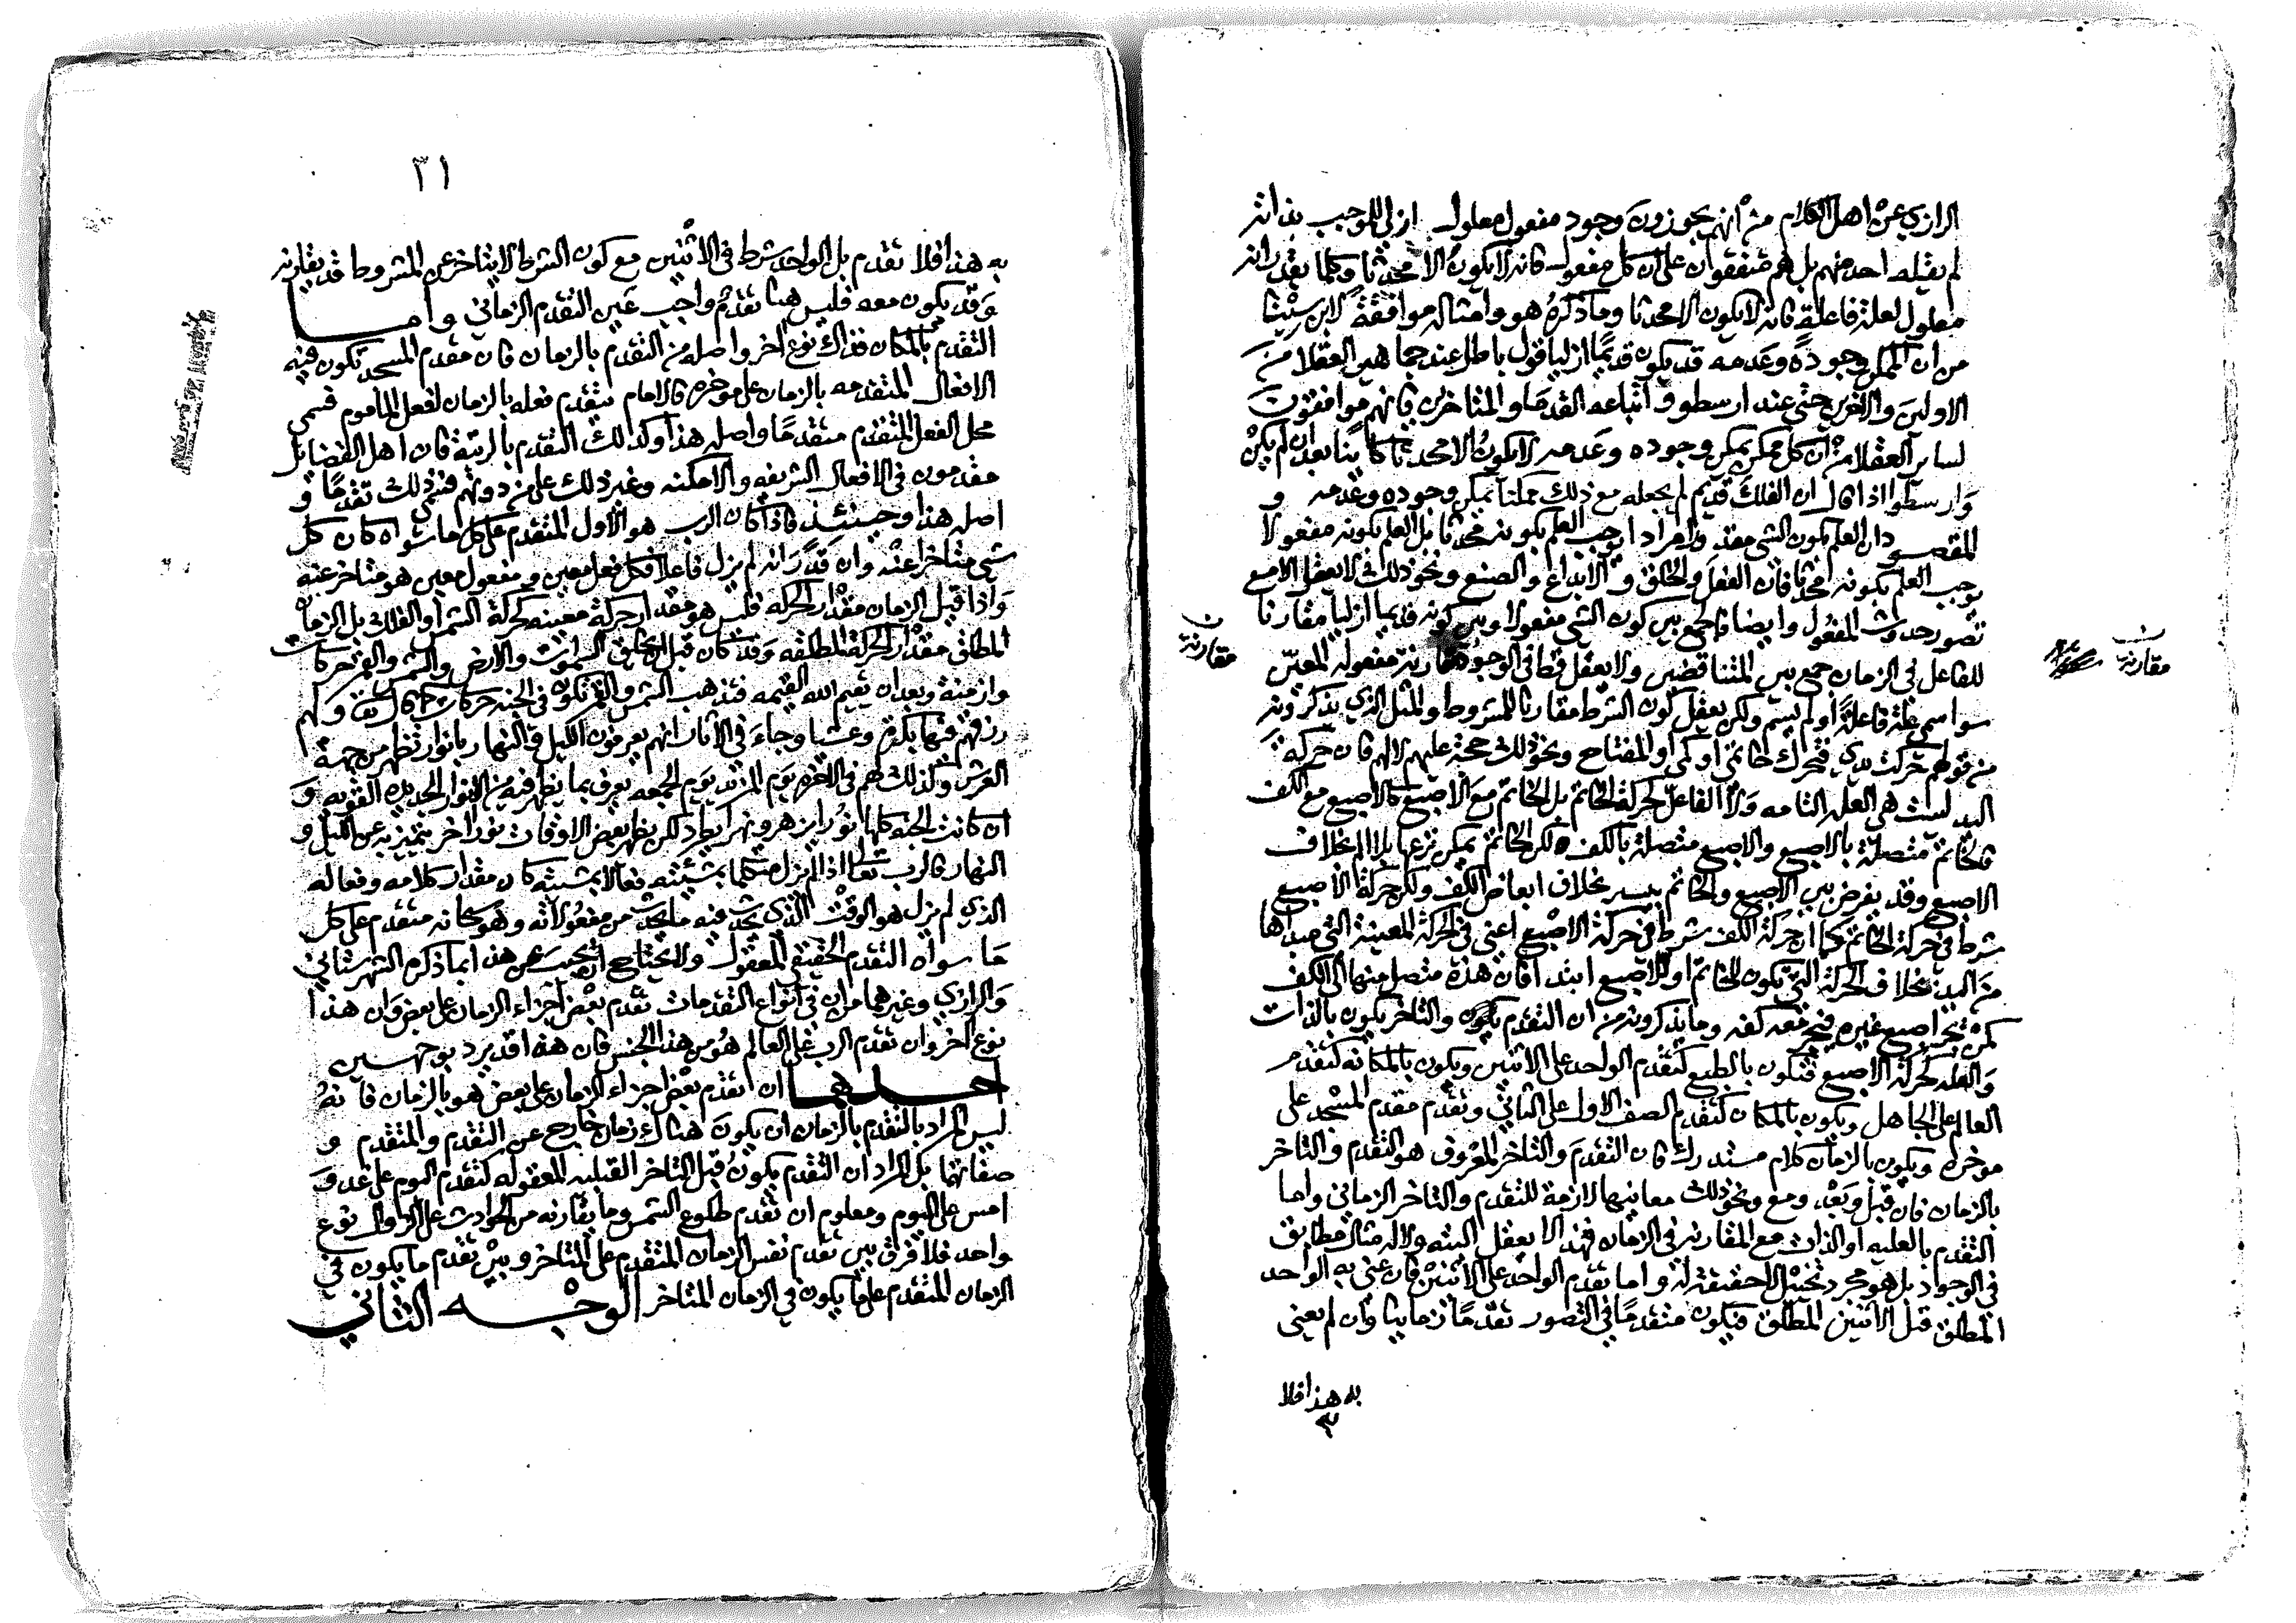 الرازي عن اهل الكلام من انهم يجوزون وجود مفعول معلول ازلي للموجب بذاته
لم يقله احد منهم بل هم متفقون على ان كل مفعول فانه لا يكون الا محدثا وكلما يقدر انه
معلول لعلة فاعلة فانه لا يكون الا محدثا وما ذكره هو وامثاله موافقة لابن سينا
من ان الممكن وجوده وعدمه قد يكون قديما ازليا قول باطل عند جماهير العقلا من
الاولين والاخرين حتى عند ارسطو واتباعه القدما والمتاخرين فانهم موافقون
لساير العقلا من ان كل ممكن يمكن وجوده وعدمه لا يكون الا محدثا كاينا بعد ان لم يكن
وارسطوا اذا قال ان الفلك قديم لم يجعله مع ذلك ممكنا يمكن وجوده وعدمه و
المقصود ان العلم بكون الشي مقدورا مرادا يوجب العلم بكونه محدثا بل العلم بكونه مفعولا
يوجب العلم بكونه محدثا فان الفعل والخلق والابداع والصنع ونحو ذلك لا يعقل الا مع
تصور حدوث المفعول وايضا فالجمع بين كون الشي مفعولا وبين كونه قديما ازليا مقارنا
للفاعل في الزمان جمع بين المتناقضين ولا يعقل قط في الوجود مقارنة مفعوله المعين
مقارنة
مقارنة
سوا سمي علة فاعلة او لم يسم ولكن يعقل كون الشرط مقارنا للمشروط والمثل الذي يذكرونه
من قولهم حركت يدي فتحرك خاتمي او كمي او المفتاح ونحو ذلك حجة عليهم لا لهم فان حركة
اليد ليست هي العلة التامه ولا الفاعل لحركة الخاتم بل الخاتم مع الاصبع كالاصبع مع الكف
فالخاتم متصلة بالاصبع والاصبع متصلة بالكف لكن الخاتم يمكن نزعها بلا الم بخلاف
الاصبع وقد يفرض بين الاصبع والخاتم يسير بخلاف ابعاض الكف ولكن حركة الاصبع
شرط في حركة الخاتم كما ان حركة الكف شرط في حركة الاصبع اعني في الحركة المعينة التي مبداها
من اليد بخلاف الحركة التي تكون للخاتم او للاصبع ابتدا فان هذه متصل منها الى الكف
كمن يجر اصبع غيره فيجر معه كفه وما يذكرونه من ان التقدم يكون والتاخر يكون بالذات
والعله كحركة الاصبع فتكون بالطبع كتقدم الواحد على الاثنين ويكون بالمكانه كتقدم
العالم على الجاهل ويكون بالمكان كتقدم الصف الاول على الثاني وتقدم مقدم المسجد على
موخره ويكون بالزمان كلام مستدرك فان التقدم والتاخر المعروف هو التقدم والتاخر
بالزمان فان قبل وبعد ومع ونحو ذلك معانيها لازمة للتقدم والتاخر الزماني واما
التقدم بالعليه او الذات مع المقارنه في الزمان فهذا لا يعقل البته ولا له مثال مطابق
في الوجود بل هو مجرد تخيل لا حقيقة له واما تقدم الواحد على الاثنين فان عني به الواحد
المطلق قبل الاثنين المطلق فيكون متقدما في التصور تقدما زمانيا وان لم يعنى
به هذا فلا
٣١
به هذا فلا تقدم بل الواحد شرط في الاثنين مع كون الشرط لا يتاخر عن المشروط قد يقارنه
وقد يكون معه فليس هنا تقدم واجب غير التقدم الزماني واما
التقدم بالمكان فذاك نوع اخر واصله من التقدم بالزمان فان مقدم المسجد تكون فيه
الافعال المتقدمه بالزمان على موخره فالامام يتقدم فعله بالزمان لفعل الماموم فسمي
محل الفعل المتقدم متقدما واصله هذا وكذالك التقدم بالرتبة فان اهل الفضايل
مقدمون في الافعال الشريفه والامكنه وغير ذلك على من دونهم فسمي ذلك تقدما و
اصله هذا وحينئذ فاذا كان الرب هو الاول المتقدم على كل ما سواه كان كل
شي متاخرا عنه وان قدر انه لم يزل فاعلا فكل فعل معين ومفعول معين هو متاخر عنه
واذا قيل الزمان مقدار الحركه فليس هو مقدار حركة معينه كحركة الشمس او الفلك بل الزمان
المطلق مقدار الحركة المطلقه وقد كان قبل ان يخلق السموات والارض والشمس والقمر حركات
وازمنة وبعد ان يقيم الله القيمه فتذهب الشمس والقمر تكون في الجنه حركات كما قال تعالى ولهم
رزقهم فيها بكرة وعشيا وجاء في الاثار انهم يعرفون الليل والنهار بانوار تظهر من جهة
العرش وكذلك لهم في الاخره يوم المزيد يوم الجمعه يعرف بما يظهر فيه من الانوار الجديده القويه و
ان كانت الجنه كلها نورا يزهر ونهرا يطرد لكن يظهر بعض الاوقات نور اخر يتميز به عن الليل و
النهار فالرب تعالى اذا لم يزل متكلما بمشيئته فعالا بمشيئته كان مقدار كلامه وفعاله
الذي لم يزل هو الوقت الذي يحدث فيه ما يحدث من مفعولاته وهو سبحانه متقدم على كل
ما سواه التقدم الحقيقي المعقول ولا يحتاج ان يجيب عن هذا بما ذكره الشهرستاني
والرازي وغيرهما من ان في انواع التقدمات تقدم بعض اجزاء الزمان على بعض وان هذا
نوع اخر وان تقدم الرب على العالم هو من هذا الجنس فان هذا قد يرد بوجهين
احدهما ان تقدم بعض اجزاء الزمان على بعض هو بالزمان فانه
ليس المراد بالتقدم بالزمان ان يكون هناك زمان خارج عن التقدم والمتقدم و
صفاتهما بل المراد ان المتقدم يكون قبل التاخر القبليه المعقوله كتقدم اليوم على غد و
امس على اليوم ومعلوم ان تقدم طلوع الشمس وما يقارنه من الحوادث على الزوال نوع
واحد فلا فرق بين تقدم نفس الزمان المتقدم على المتاخر وبين تقدم ما يكون في
الزمان المتقدم على ما يكون في الزمان المتاخر الوجه الثاني